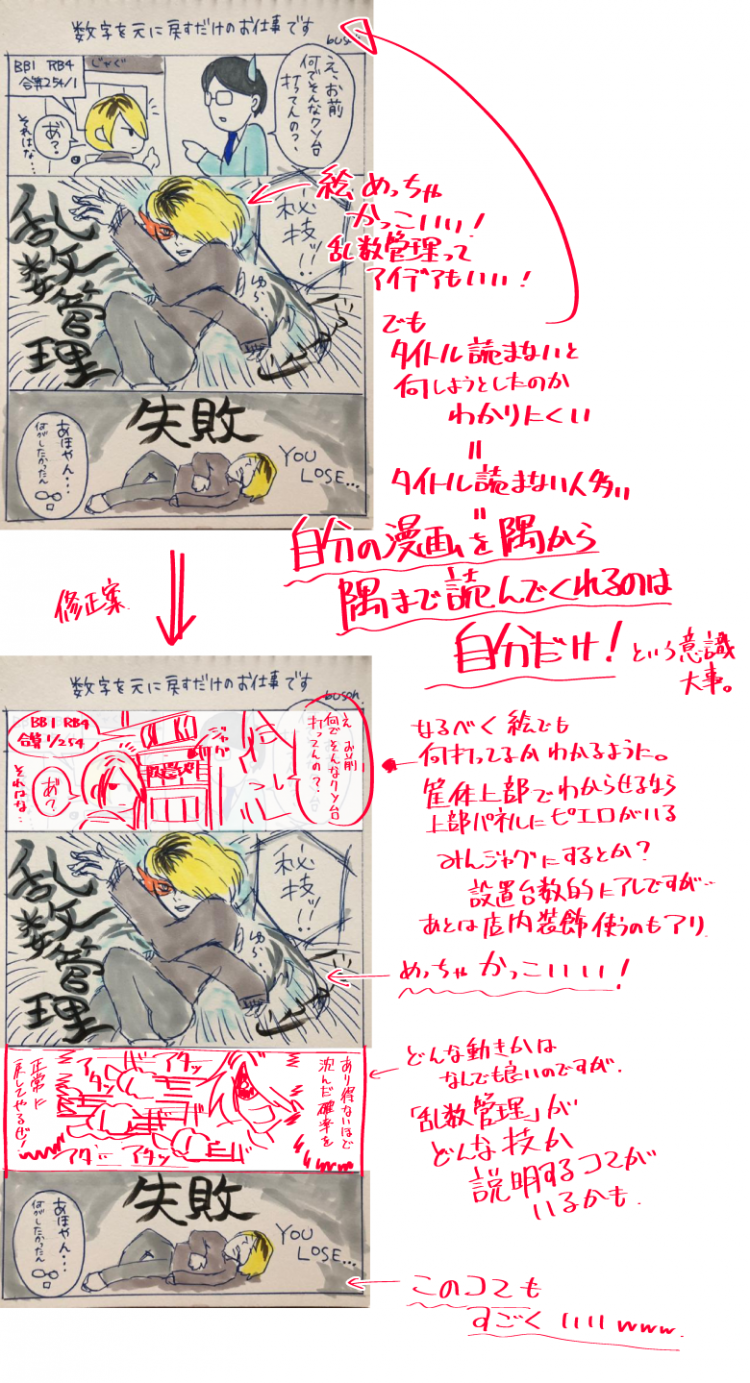 数字を元に戻すだけのお仕事です
buson
え、お前
何でそんなクソ台
打ってんの?、
じゃぐ
BB1 RB4
合算254/1
あ゛?
それはな…
秘技ッ!!
ゆら
乱数管理
失敗
YOU
LOSE...
あほやん…
何がしたかったん
絵めっちゃ
かっこいい!
乱数管理って
アイデアもいい!
でも
タイトル読まないと
何しようとしたのか
わかりにくい
=
タイトル読まない人多い
=
自分の漫画を隅から
隅まで読んでくれるのは
自分だけ!という意識
大事。
修正案
数字を元に戻すだけのお仕事です
buson
え お前
何でそんなクソ台
打ってんの?、
ジャグ
BB1 RB4
合算1/254
あ゛?
それはな…
なるべく絵でも
何打ってるかわかるように。
筐体上部でわからせるなら
上部パネルにピエロがいる
みんジャグにするとか?
設置台数的にアレですが…
あとは店内装飾使うのもアリ
秘技ッ!!
ゆら
乱数管理
めっちゃかっこいい!
あり得ないほど
沈んだ確率を
アタッ
アタッ
アダッ
アタッ
正常に
戻してやるぜ!
どんな動きかは
なんでも良いのですが、
「乱数管理」が
どんな技か
説明するコマが
いるかも
失敗
YOU
LOSE...
あほやん…
何がしたかったん
このコマも
すごくいいwww